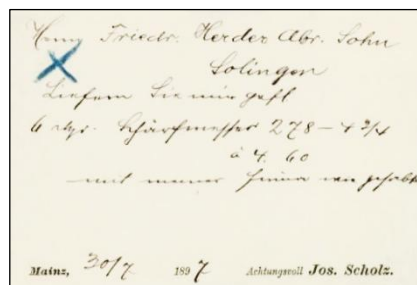 Herrn Friedr. Herder Abr. Sohn
Solingen
Liefern Sie mir gefl
6 Schärfmesser 278 – 4 3/4
à 4. 60
mit meiner Firma wie gehabt
Mainz, 30/7 1897 Achtungsvoll Jos. Scholz.